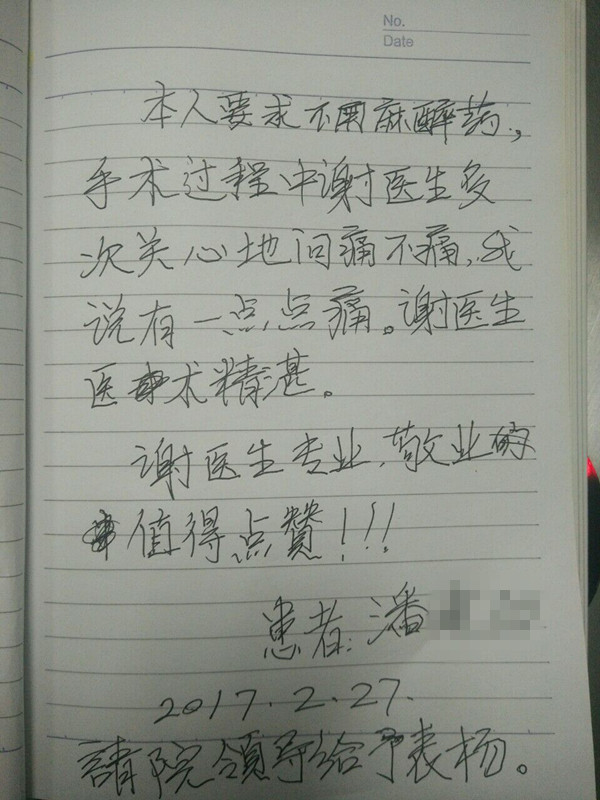 No.
Date
本人要求不用麻醉药，
手术过程中谢医生多
次关心地问痛不痛，我
说有一点点痛。谢医生
医术精湛。
谢医生专业，敬业的
值得点贊！！！
患者：潘
2017.2.27.
請院領导给予表杨。